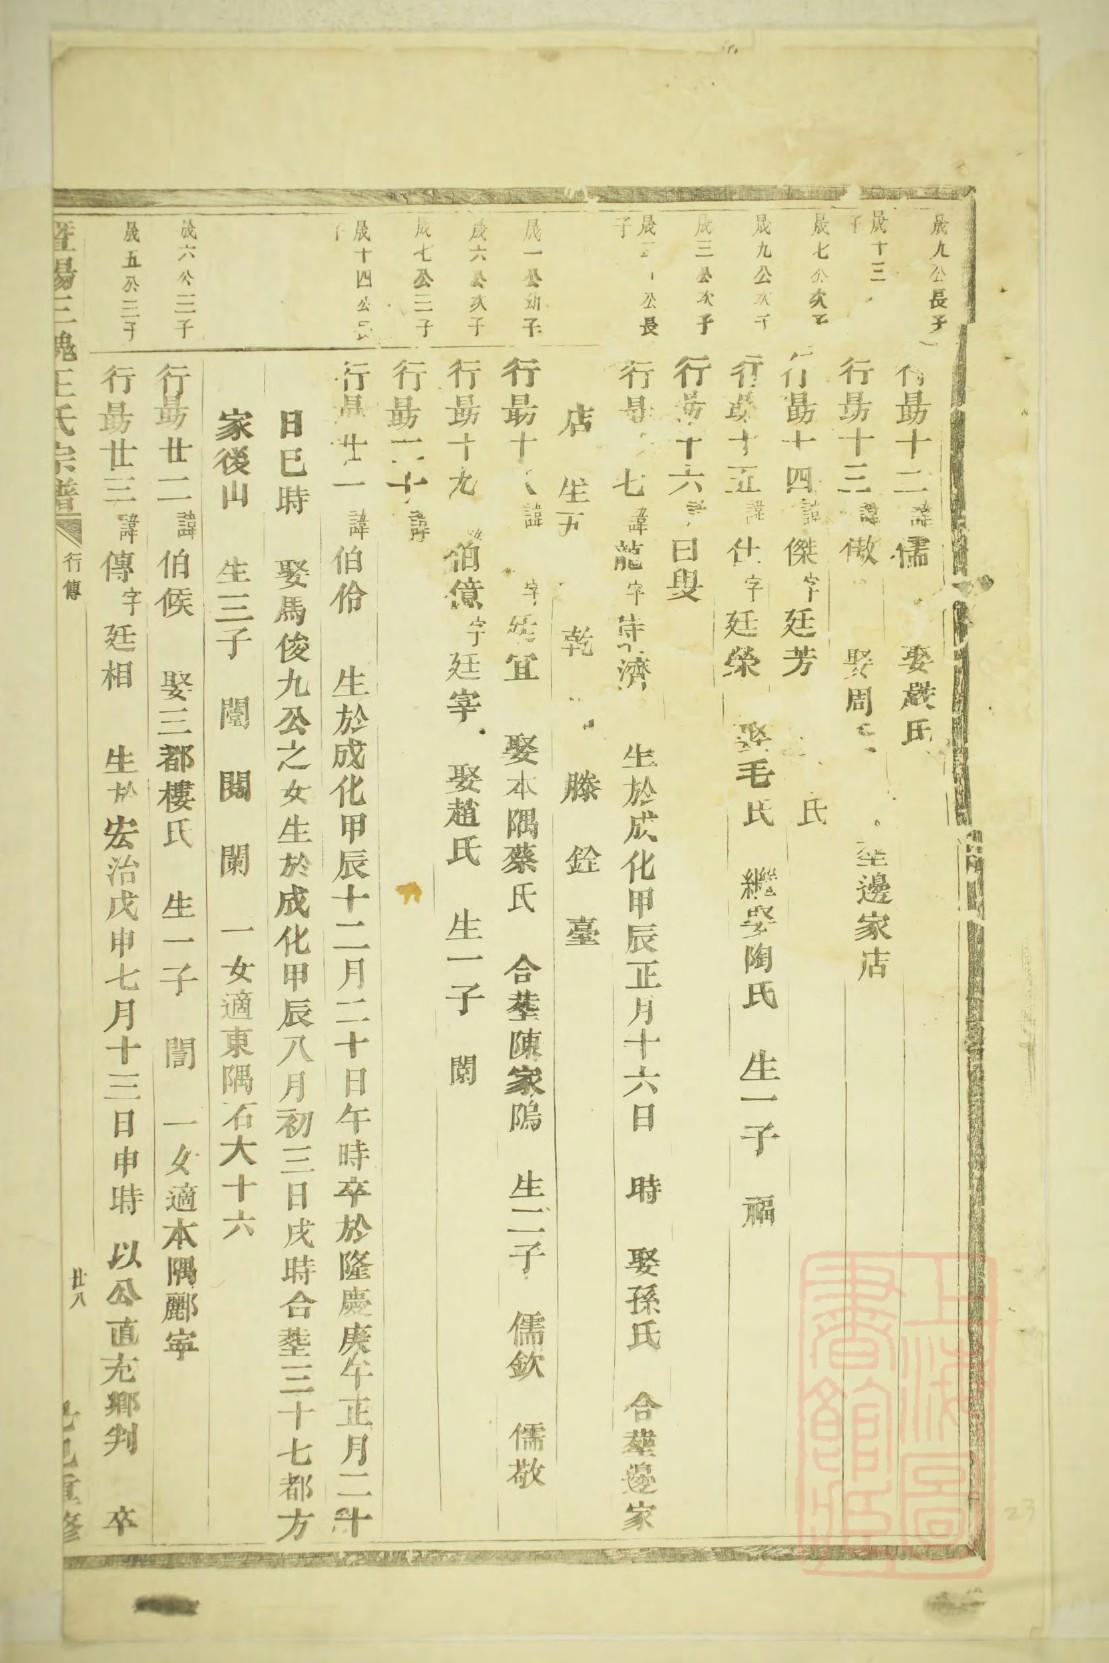 晟九公長子
行勗十二諱儒 娶嚴氏
晟十三
子
行勗十三諱儆 娶周氏 塟邊家店
晟七公次子
行勗十四諱傑字廷芳 氏
晟九公次子
行勗十五諱仕字廷榮 娶毛氏 繼娶陶氏 生一子 福
晟三公次子
行勗十六諱曰㫷
晟十公長
子
行勗 七諱龍字 濟 生於成化甲辰正月十六日 時 娶孫氏 合塟邊家
店 生五 乾 滕 銓 臺
晟一公幼子
行勗十八諱 字廷宜 娶本隅蔡氏 合塟陳家塢 生二子 儒欽 儒敬
晟六公次子
行勗十九諱伯億字廷宰 娶趙氏 生一子 閺
晟七公三子
行勗二十諱
晟十四公長
子
行勗廿一諱伯伶 生於成化甲辰十二月二十日午時卒於隆慶庚午正月二十
日巳時 娶馬俊九公之女生於成化甲辰八月初三日戌時合塟三十七都方
家後山 生三子 閶 閱 闌 一女適東隅石大十六
晟六公三子
行勗廿二諱伯候 娶三都樓氏 生一子 誾 一女適本隅酈寧
晟五公三子
行勗廿三諱傳字廷相 生於宏治戊申七月十三日申時 以公直充鄉判 卒
暨陽三槐王氏宗譜 行傳 廿八 重修
上海圖
書館藏
23